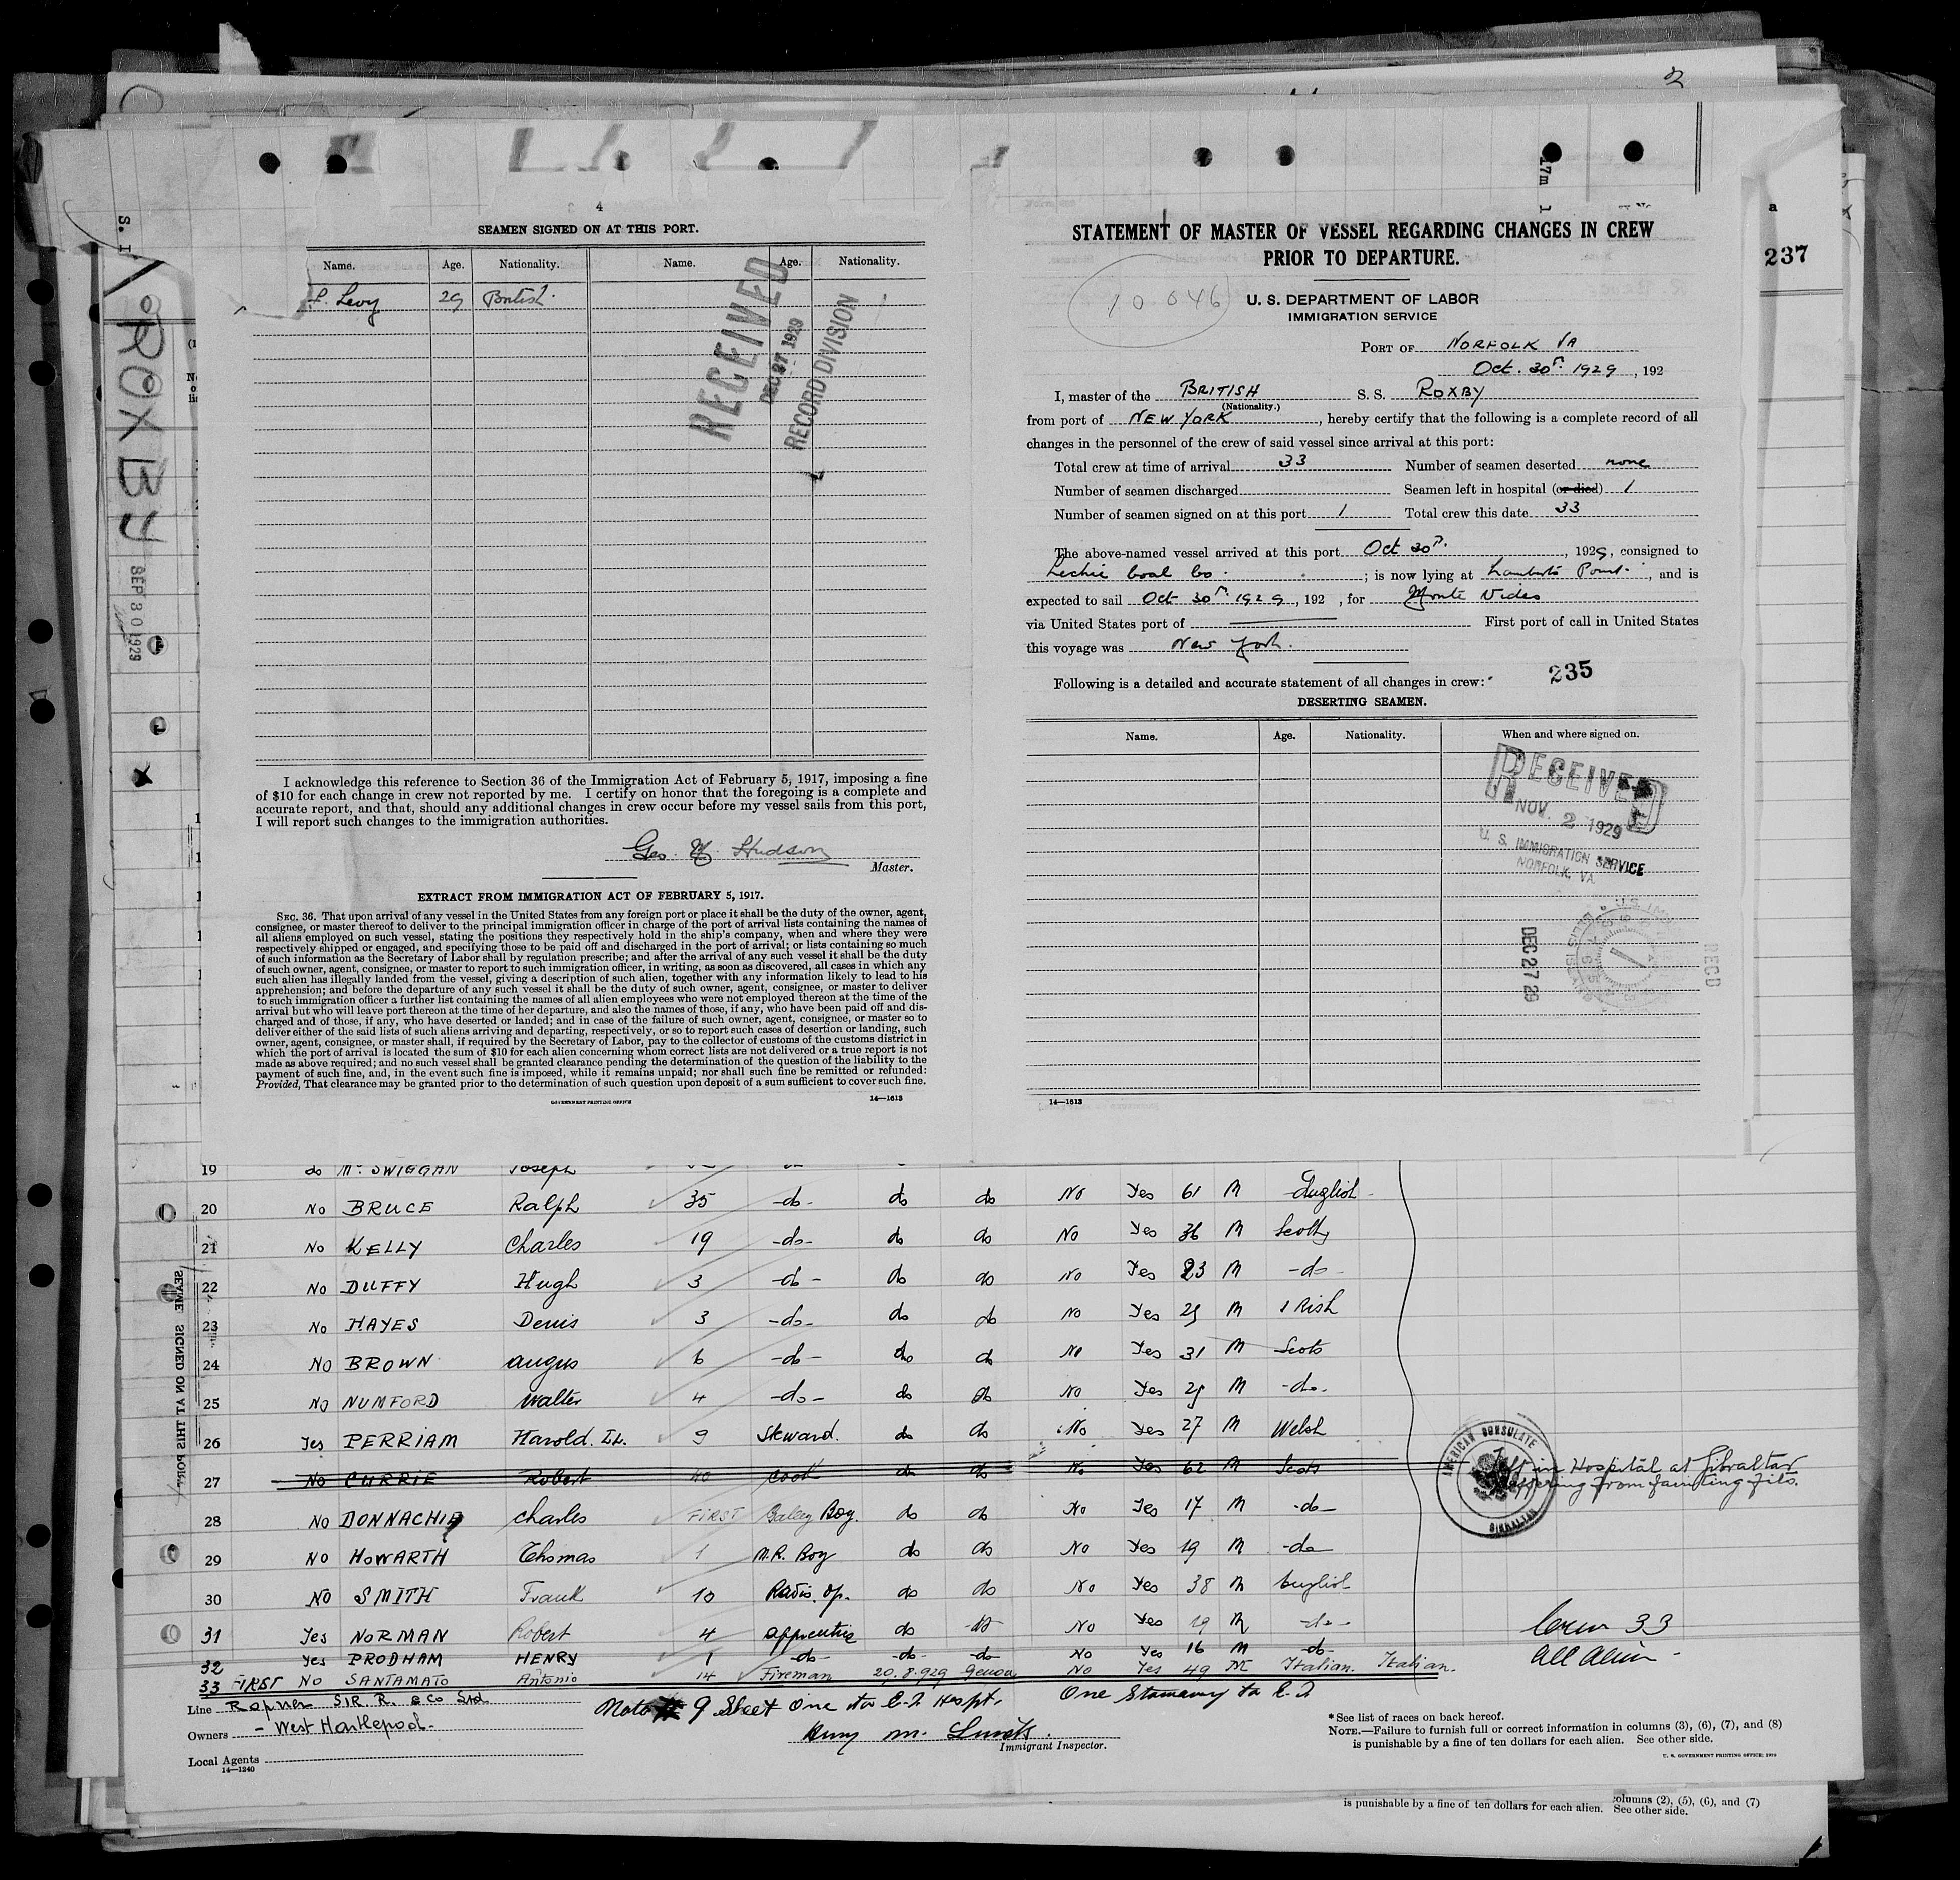 4
SEAMEN SIGNED ON AT THIS PORT.
Name. Age. Nationality. Name. Age. Nationality.
Levy 29 British
RECEIVED
DEC 27 1929
RECORD DIVISION
I acknowledge this reference to Section 36 of the Immigration Act of February 5, 1917, imposing a fine
of $10 for each change in crew not reported by me. I certify on honor that the foregoing is a complete and
accurate report, and that, should any additional changes in crew occur before my vessel sails from this port,
I will report such changes to the immigration authorities.
Geo. Hudson
Master.
EXTRACT FROM IMMIGRATION ACT OF FEBRUARY 5, 1917.
SEC. 36. That upon arrival of any vessel in the United States from any foreign port or place it shall be the duty of the owner, agent,
consignee, or master thereof to deliver to the principal immigration officer in charge of the port of arrival lists containing the names of
all aliens employed on such vessel, stating the positions they respectively hold in the ship's company, when and where they were
respectively shipped or engaged, and specifying those to be paid off and discharged in the port of arrival; or lists containing so much
of such information as the Secretary of Labor shall by regulation prescribe; and after the arrival of any such vessel it shall be the duty
of such owner, agent, consignee, or master to report to such immigration officer, in writing, as soon as discovered, all cases in which any
such alien has illegally landed from the vessel, giving a description of such alien, together with any information likely to lead to his
apprehension; and before the departure of any such vessel it shall be the duty of such owner, agent, consignee, or master to deliver
to such immigration officer a further list containing the names of all alien employees who were not employed thereon at the time of the
arrival but who will leave port thereon at the time of her departure, and also the names of those, if any, who have been paid off and dis-
charged and of those, if any, who have deserted or landed; and in case of the failure of such owner, agent, consignee, or master so to
deliver either of the said lists of such aliens arriving and departing, respectively, or so to report such cases of desertion or landing, such
owner, agent, consignee, or master shall, if required by the Secretary of Labor, pay to the collector of customs of the customs district in
which the port of arrival is located the sum of $10 for each alien concerning whom correct lists are not delivered or a true report is not
made as above required; and no such vessel shall be granted clearance pending the determination of the question of the liability to the
payment of such fine, and, in the event such fine is imposed, while it remains unpaid; nor shall such fine be remitted or refunded:
Provided, That clearance may be granted prior to the determination of such question upon deposit of a sum sufficient to cover such fine.
GOVERNMENT PRINTING OFFICE 14—1613
STATEMENT OF MASTER OF VESSEL REGARDING CHANGES IN CREW
PRIOR TO DEPARTURE.
10046
U. S. DEPARTMENT OF LABOR
IMMIGRATION SERVICE
PORT OF NORFOLK VA
Oct. 30. 1929, 192
I, master of the BRITISH S. S. ROXBY
(Nationality.)
from port of NEW YORK, hereby certify that the following is a complete record of all
changes in the personnel of the crew of said vessel since arrival at this port:
Total crew at time of arrival 33 Number of seamen deserted none
Number of seamen discharged Seamen left in hospital (or died) 1
Number of seamen signed on at this port 1 Total crew this date 33
The above-named vessel arrived at this port Oct 30, 1929, consigned to
Coal Co. ; is now lying at Lamberts Point, and is
expected to sail Oct 30. 1929, 192 , for Monte Video
via United States port of First port of call in United States
this voyage was New York.
235
Following is a detailed and accurate statement of all changes in crew:
DESERTING SEAMEN.
Name. Age. Nationality. When and where signed on.
RECEIVED
NOV. 2 1929
U. S. IMMIGRATION SERVICE
NORFOLK, VA
DEC 27 29
RECD
14—1613
a
237
S. I
ROXBY
SEP 30 1929
SEAMEN SIGNED ON AT THIS PORT
19 do Mc SWIGGAN Joseph
20 No BRUCE Ralph 35 -do- do do No Yes 61 M English
21 No KELLY Charles 19 -do- do do No Yes 36 M Scotty
22 No DUFFY Hugh 3 -do- do do No Yes 23 M -do-
23 No HAYES Denis 3 -do- do do No Yes 29 M IRish
24 NO BROWN Angus 6 -do- do do No Yes 31 M Scots
25 No NUMFORD Walter 4 -do- do do No Yes 25 M -do-
26 Yes PERRIAM Harold. 9 Steward. do do No Yes 27 M Welsh
27 No CURRIE Robert 40 Cook do do No Yes 62 M Scots Left in Hospital at Gibraltar
suffering from fainting fits.
AMERICAN CONSULATE
GIBRALTAR
28 No DONNACHIE Charles FIRST Galley Boy. do do No Yes 17 M -do-
29 NO HOWARTH Thomas 1 M.R. Boy do do No Yes 19 M -do-
30 NO SMITH Frank 10 Radio. Op. do do No Yes 38 M English
31 Yes NORMAN Robert 4 Apprentice do do No Yes 19 M -do- Crew 33
32 Yes PRODHAM HENRY 1 -do- -do- -do- No Yes 16 M -do- All Alien
33 FIRST NO SANTAMATO Antonio 14 Fireman 20.8.929 Genoa No Yes 49 M Italian. Italian.
Line Ropner SIR R. & Co Ltd.
Owners - West Hartlepool-
Local Agents
14—1240
9 Sheet One to E.I Hospt. One Stowaway to E.I
Immigrant Inspector.
*See list of races on back hereof.
NOTE.—Failure to furnish full or correct information in columns (3), (6), (7), and (8)
is punishable by a fine of ten dollars for each alien. See other side.
U. S. GOVERNMENT PRINTING OFFICE: 1929
columns (2), (5), (6), and (7)
is punishable by a fine of ten dollars for each alien. See other side.